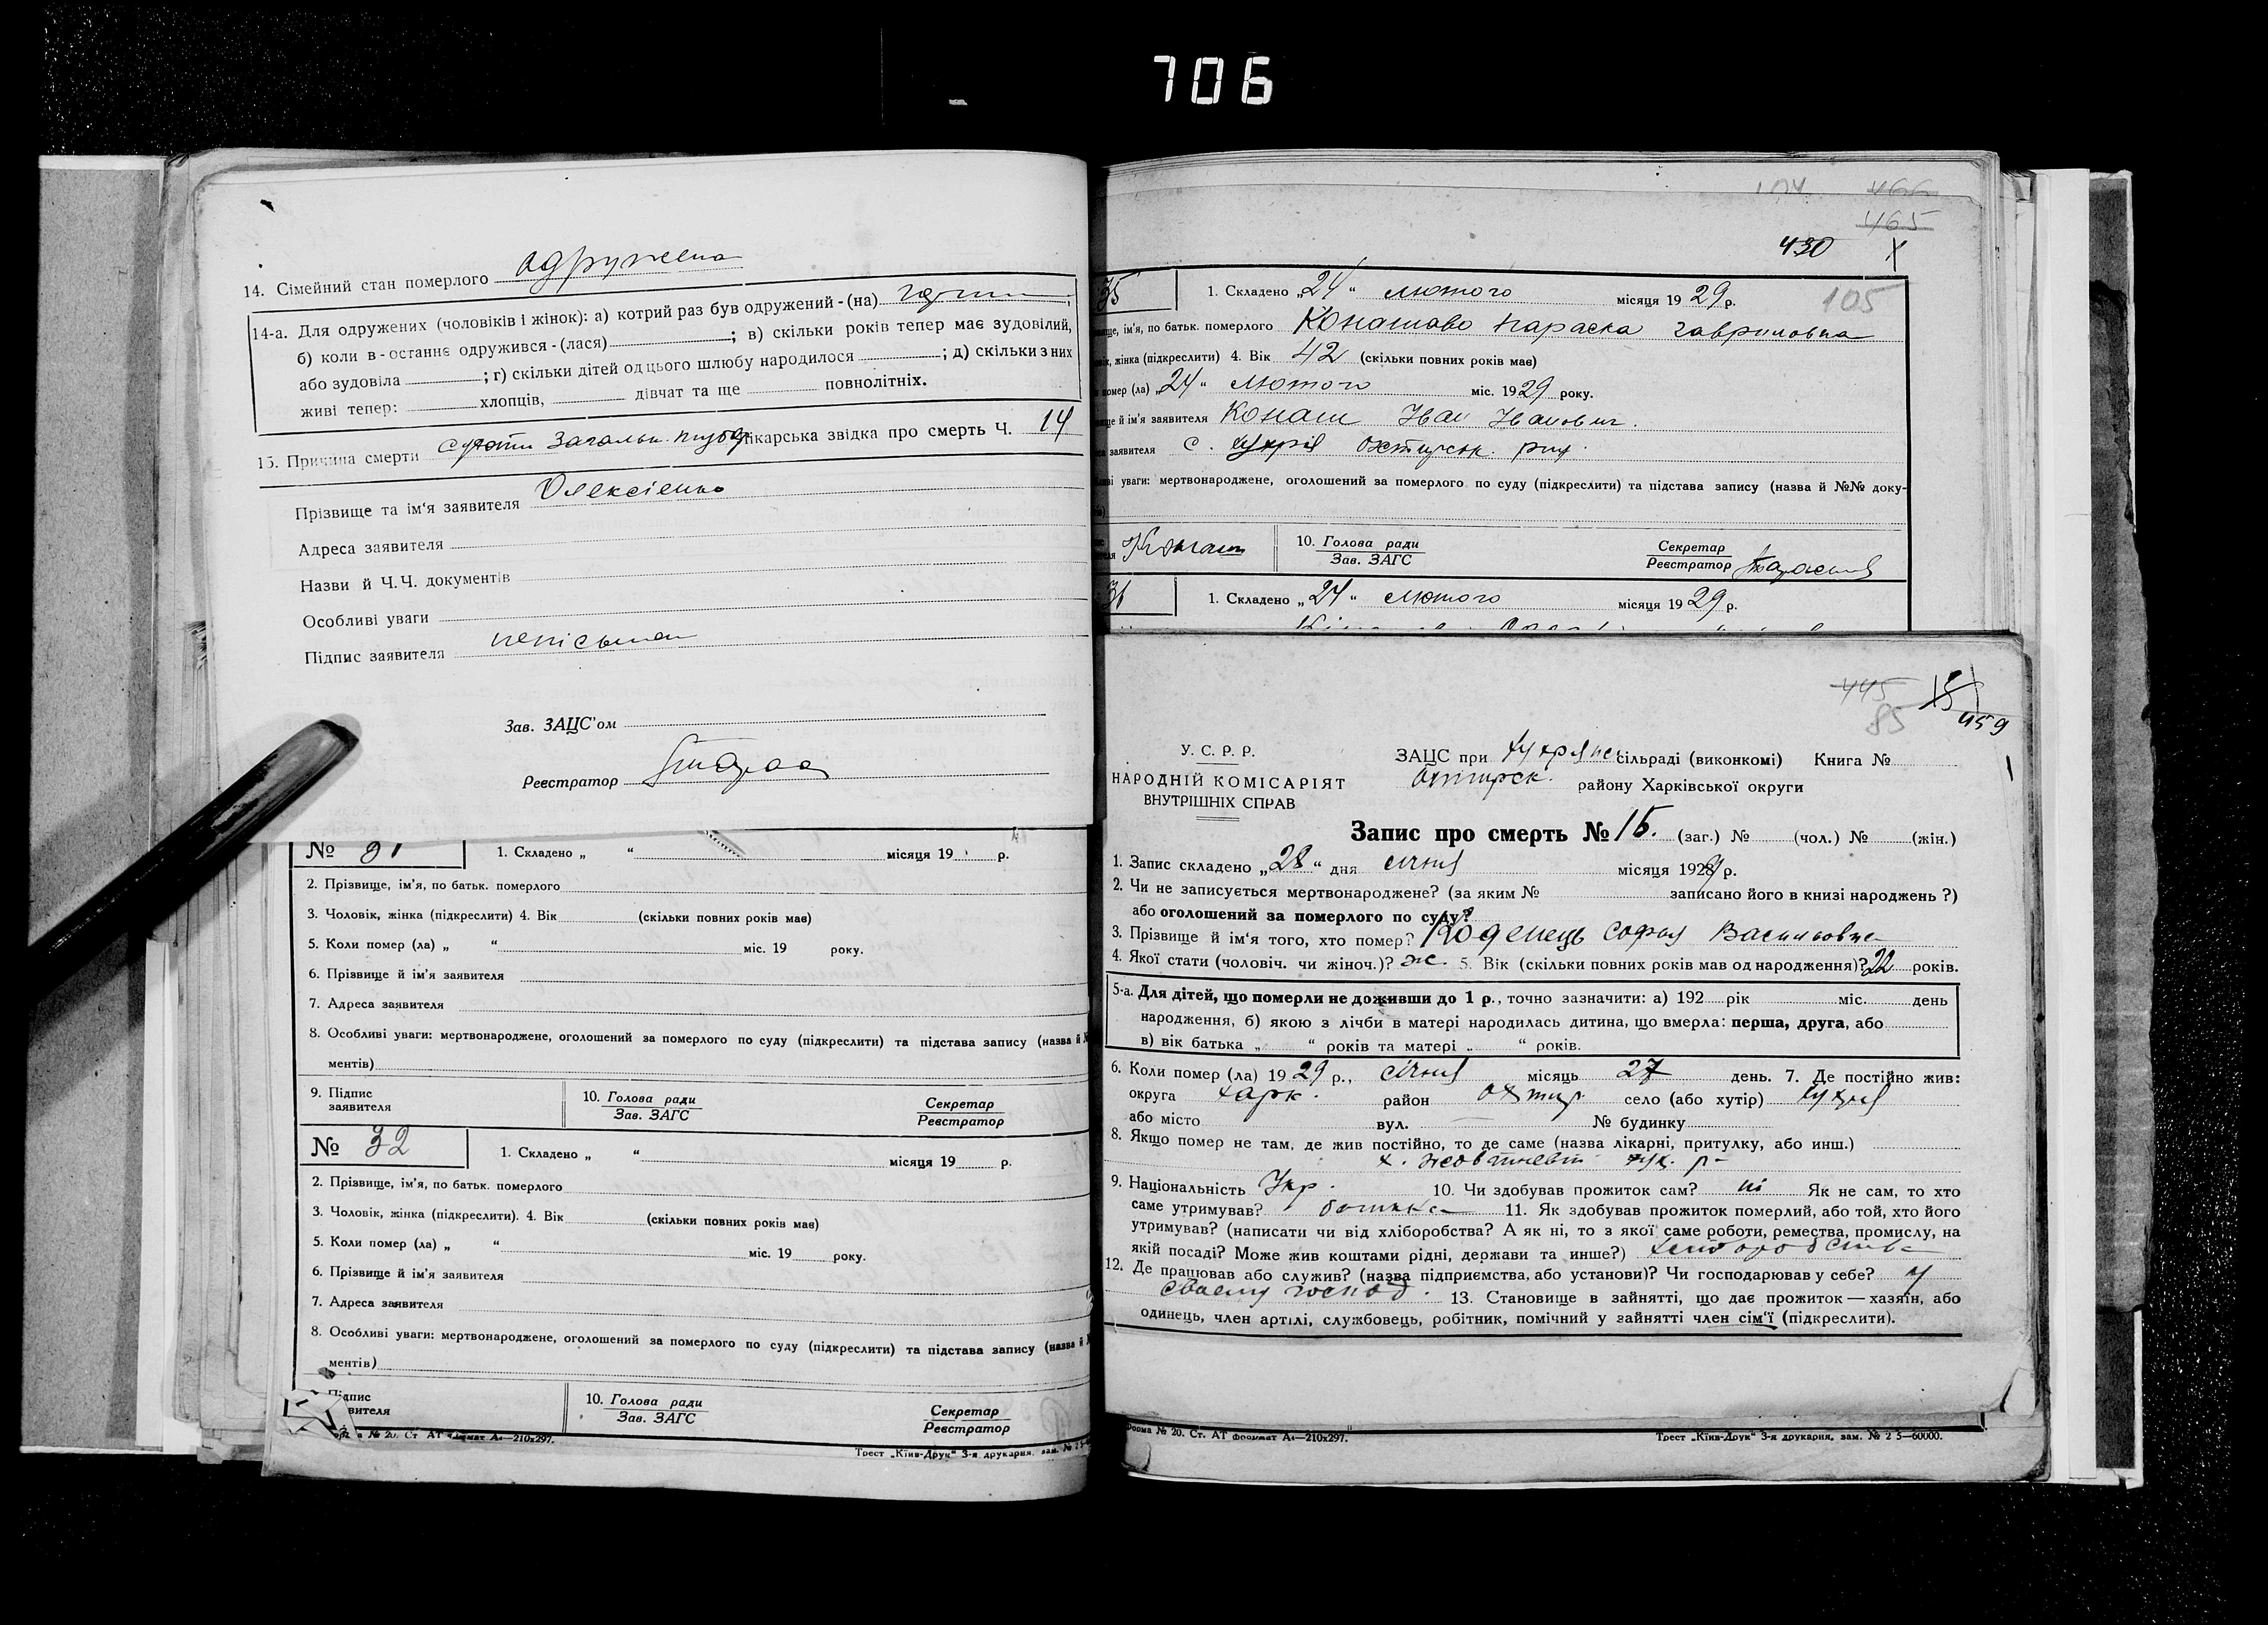 706
14. Сімейний стан померлого одружена
14-а. Для одружених (чоловіків і жінок): а) котрий раз був одружений - (на)
б) коли в - останнє одружився - (лася) ; в) скільки років тепер має зудовілий,
або зудовіла ; г) скільки дітей од цього шлюбу народилося ; д) скільки з них
живі тепер: хлопців, дівчат та ще повнолітніх.
15. Причина смерти Лікарська звідка про смерть Ч. 14
Прізвище та ім'я заявителя Олексієнко
Адреса заявителя
Назви й Ч. Ч. документів
Особливі уваги
Підпис заявителя
Зав. ЗАЦС'ом
Реєстратор
№ 31 1. Складено „ “ місяця 19 р.
2. Прізвище, ім'я, по батьк. померлого
3. Чоловік, жінка (підкреслити) 4. Вік (скільки повних років має)
5. Коли помер (ла) „ “ міс. 19 року.
6. Прізвище й ім'я заявителя
7. Адреса заявителя
8. Особливі уваги: мертвонароджене, оголошений за померлого по суду (підкреслити) та підстава запису (назва й
ментів)
9. Підпис заявителя 10. Голова ради Зав. ЗАГС Секретар Реєстратор
№ 32 1. Складено „ “ місяця 19 р.
2. Прізвище, ім'я, по батьк. померлого
3. Чоловік, жінка (підкреслити). 4. Вік (скільки повних років має)
5. Коли помер (ла) „ “ міс. 19 року.
6. Прізвище й ім'я заявителя
7. Адреса заявителя
8. Особливі уваги: мертвонароджене, оголошений за померлого по суду (підкреслити) та підстава запису (назва й
ментів)
Підпис вителя 10. Голова ради Зав. ЗАГС Секретар Реєстратор
№ 20. Ст. АТ формат А4—210х297.
Трест „Київ-Друк“ 3-я друкарня, зам. №
466
465
430
105
35 1. Складено „24“ лютого місяця 1929 р.
ім'я, по батьк. померлого Конашова Параска Гавриловна
жінка (підкреслити) 4. Вік 42 (скільки повних років має)
помер (ла) „24“ лютого міс. 1929 року.
й ім'я заявителя Конаш Іван Іванович.
заявителя с. Хухрія
уваги: мертвонароджене, оголошений за померлого по суду (підкреслити) та підстава запису (назва й №№ доку-
Конаш 10. Голова ради Зав. ЗАГС Секретар Реєстратор
36 1. Складено „24“ лютого місяця 1929 р.
445
85
459
У. С. Р. Р. ЗАЦС при Хухрянс. сільраді (виконкомі) Книга №
НАРОДНІЙ КОМІСАРІЯТ Охтирск. району Харківської округи
ВНУТРІШНІХ СПРАВ
Запис про смерть № 15. (заг.) № (чол.) № (жін.)
1. Запис складено „28“ дня січня місяця 1929 р.
2. Чи не записується мертвонароджене? (за яким № записано його в книзі народжень ?)
або оголошений за померлого по суду?
3. Прізвище й ім'я того, хто помер? Коденець Софья Васильовна
4. Якої стати (чоловіч. чи жіноч.)? ж. 5. Вік (скільки повних років мав од народження)? 22 років.
5-а. Для дітей, що померли не доживши до 1 р., точно зазначити: а) 192 рік міс. день
народження, б) якою з лічби в матері народилась дитина, що вмерла: перша, друга, або
в) вік батька „ “ років та матері „ “ років.
6. Коли помер (ла) 1929 р., січня місяць 27 день. 7. Де постійно жив:
округа Харк. район Охтир. село (або хутір) Хухрія
або місто вул. № будинку
8. Якщо помер не там, де жив постійно, то де саме (назва лікарні, притулку, або инш.)
9. Національність Укр. 10. Чи здобував прожиток сам? ні Як не сам, то хто
саме утримував? 11. Як здобував прожиток померлий, або той, хто його
утримував? (написати чи від хліборобства? А як ні, то з якої саме роботи, ремества, промислу, на
якій посаді? Може жив коштами рідні, держави та инше?) хліборобства
12. Де працював або служив? (назва підприємства, або установи)? Чи господарював у себе? у
своему господ. 13. Становище в зайнятті, що дає прожиток — хазяїн, або
одинець, член артілі, службовець, робітник, помічний у зайнятті член сім'ї (підкреслити).
Форма № 20. Ст. АТ формат А4—210х297.
Трест „Київ-Друк“ 3-я друкарня, зам. № 2 5—60000.